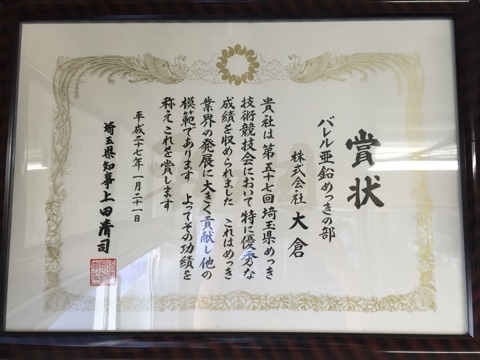 賞状
バレル亜鉛めっきの部
株式会社 大倉
貴社は 第五十七回埼玉県めっき
技術競技会において 特に優秀な
成績を収められました これはめっき
業界の発展に大きく貢献し他の
模範であります よってその功績を
称え これを賞します
平成二十七年一月二十一日
埼玉県知事 上田清司